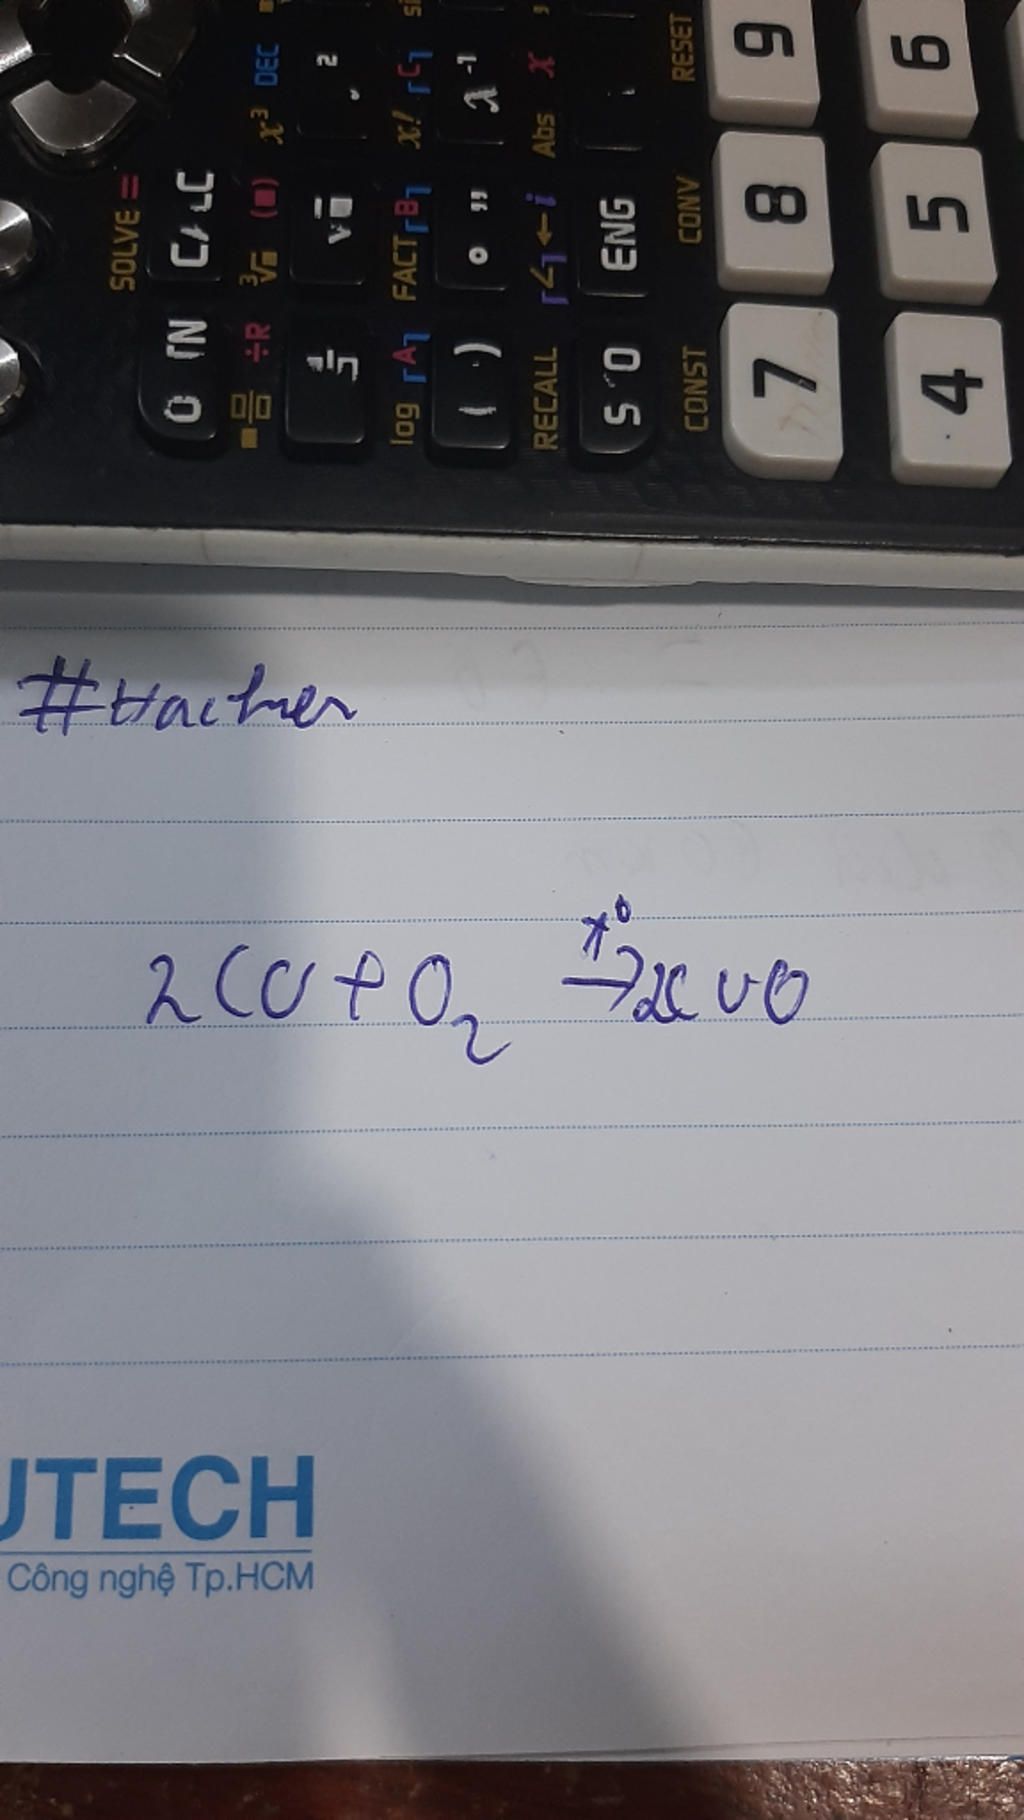 DEC
x³
x!
Abs
RESET
9
6
SOLVE =
CALC
³√
FACT
B
ENG
CONV
8
5
ON
÷R
log
A
(-)
RECALL
CONST
7
4
2Cu + O₂ —t⁰→ 2CuO
UTECH
Công nghệ Tp.HCM